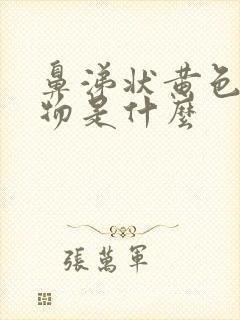 鼻涕状黄色
物是什麼
張萬軍